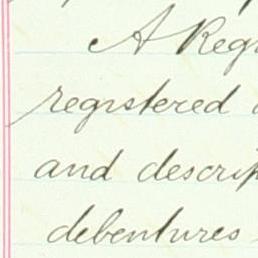 A Reg
registered
and descrip
debentures